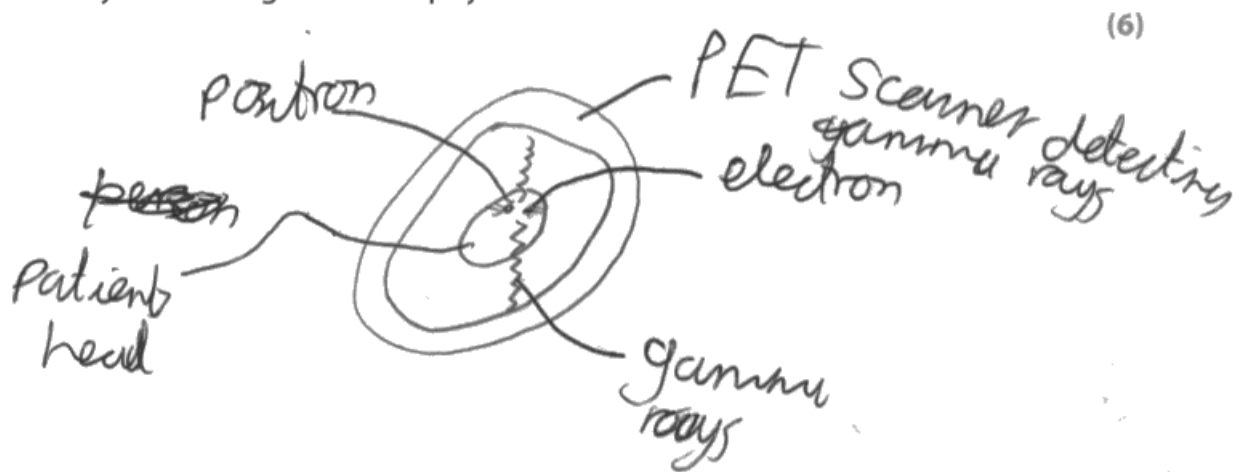 (6)
positron
PET scanner detecting
gamma rays
electron
patient
head
gamma
rays